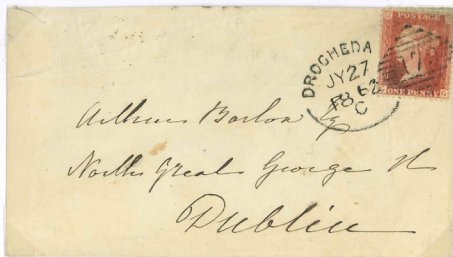 POSTAGE
ONE PENNY
DROGHEDA
JY 27
62
C
Arthur Barlow
North Great George St
Dublin